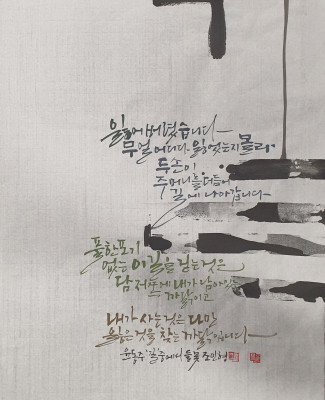 잃어버렸습니다
무얼 어디다 잃었는지 몰라
두 손이
주머니를 더듬어
길에 나아갑니다
풀 한 포기
없는 이 길을 걷는 것은
담 저쪽에 내가 남아있는
까닭이고
내가 사는 것은 다만
잃은 것을 찾는 까닭입니다
윤동주 '길' 중에서 들꽃 조민형